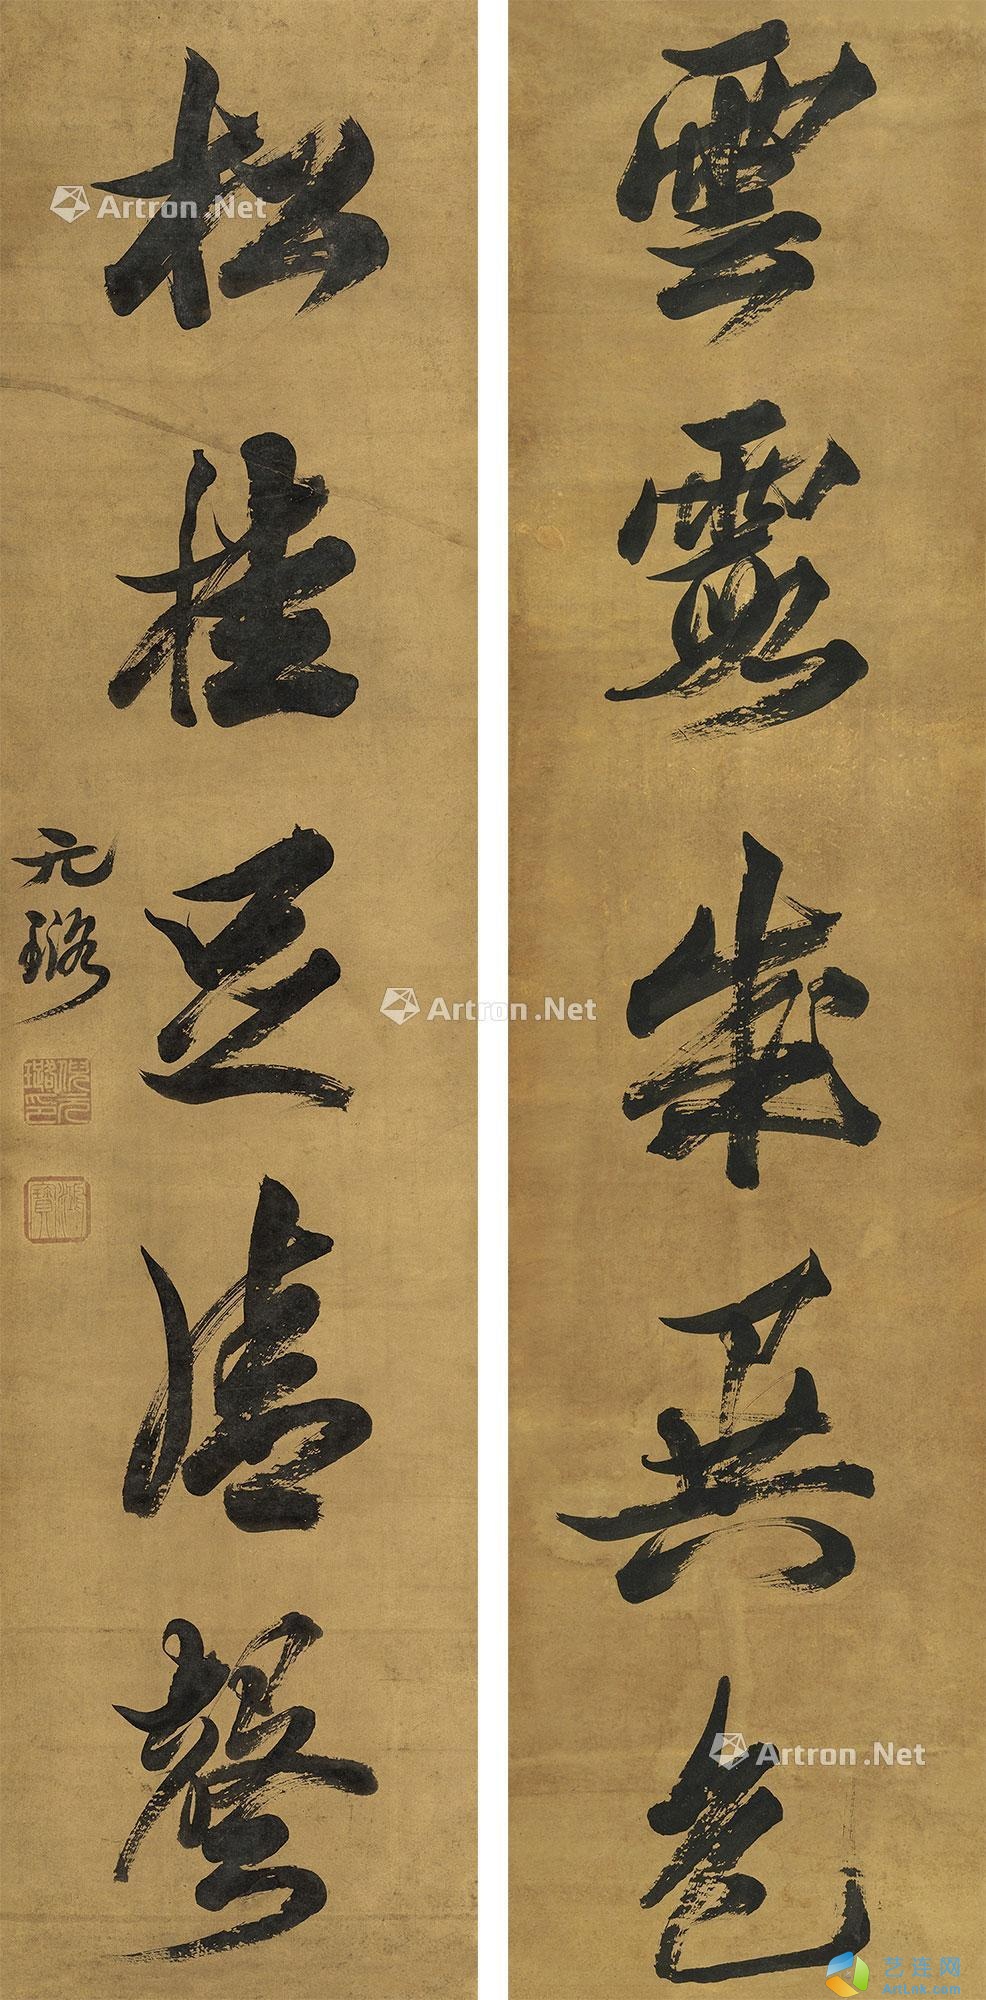 雲霞成異色
松桂足清聲
元璐
倪元璐印
鴻寶
Artron.Net
Artron.Net
Artron.Net
艺连网
ArtLnk.com